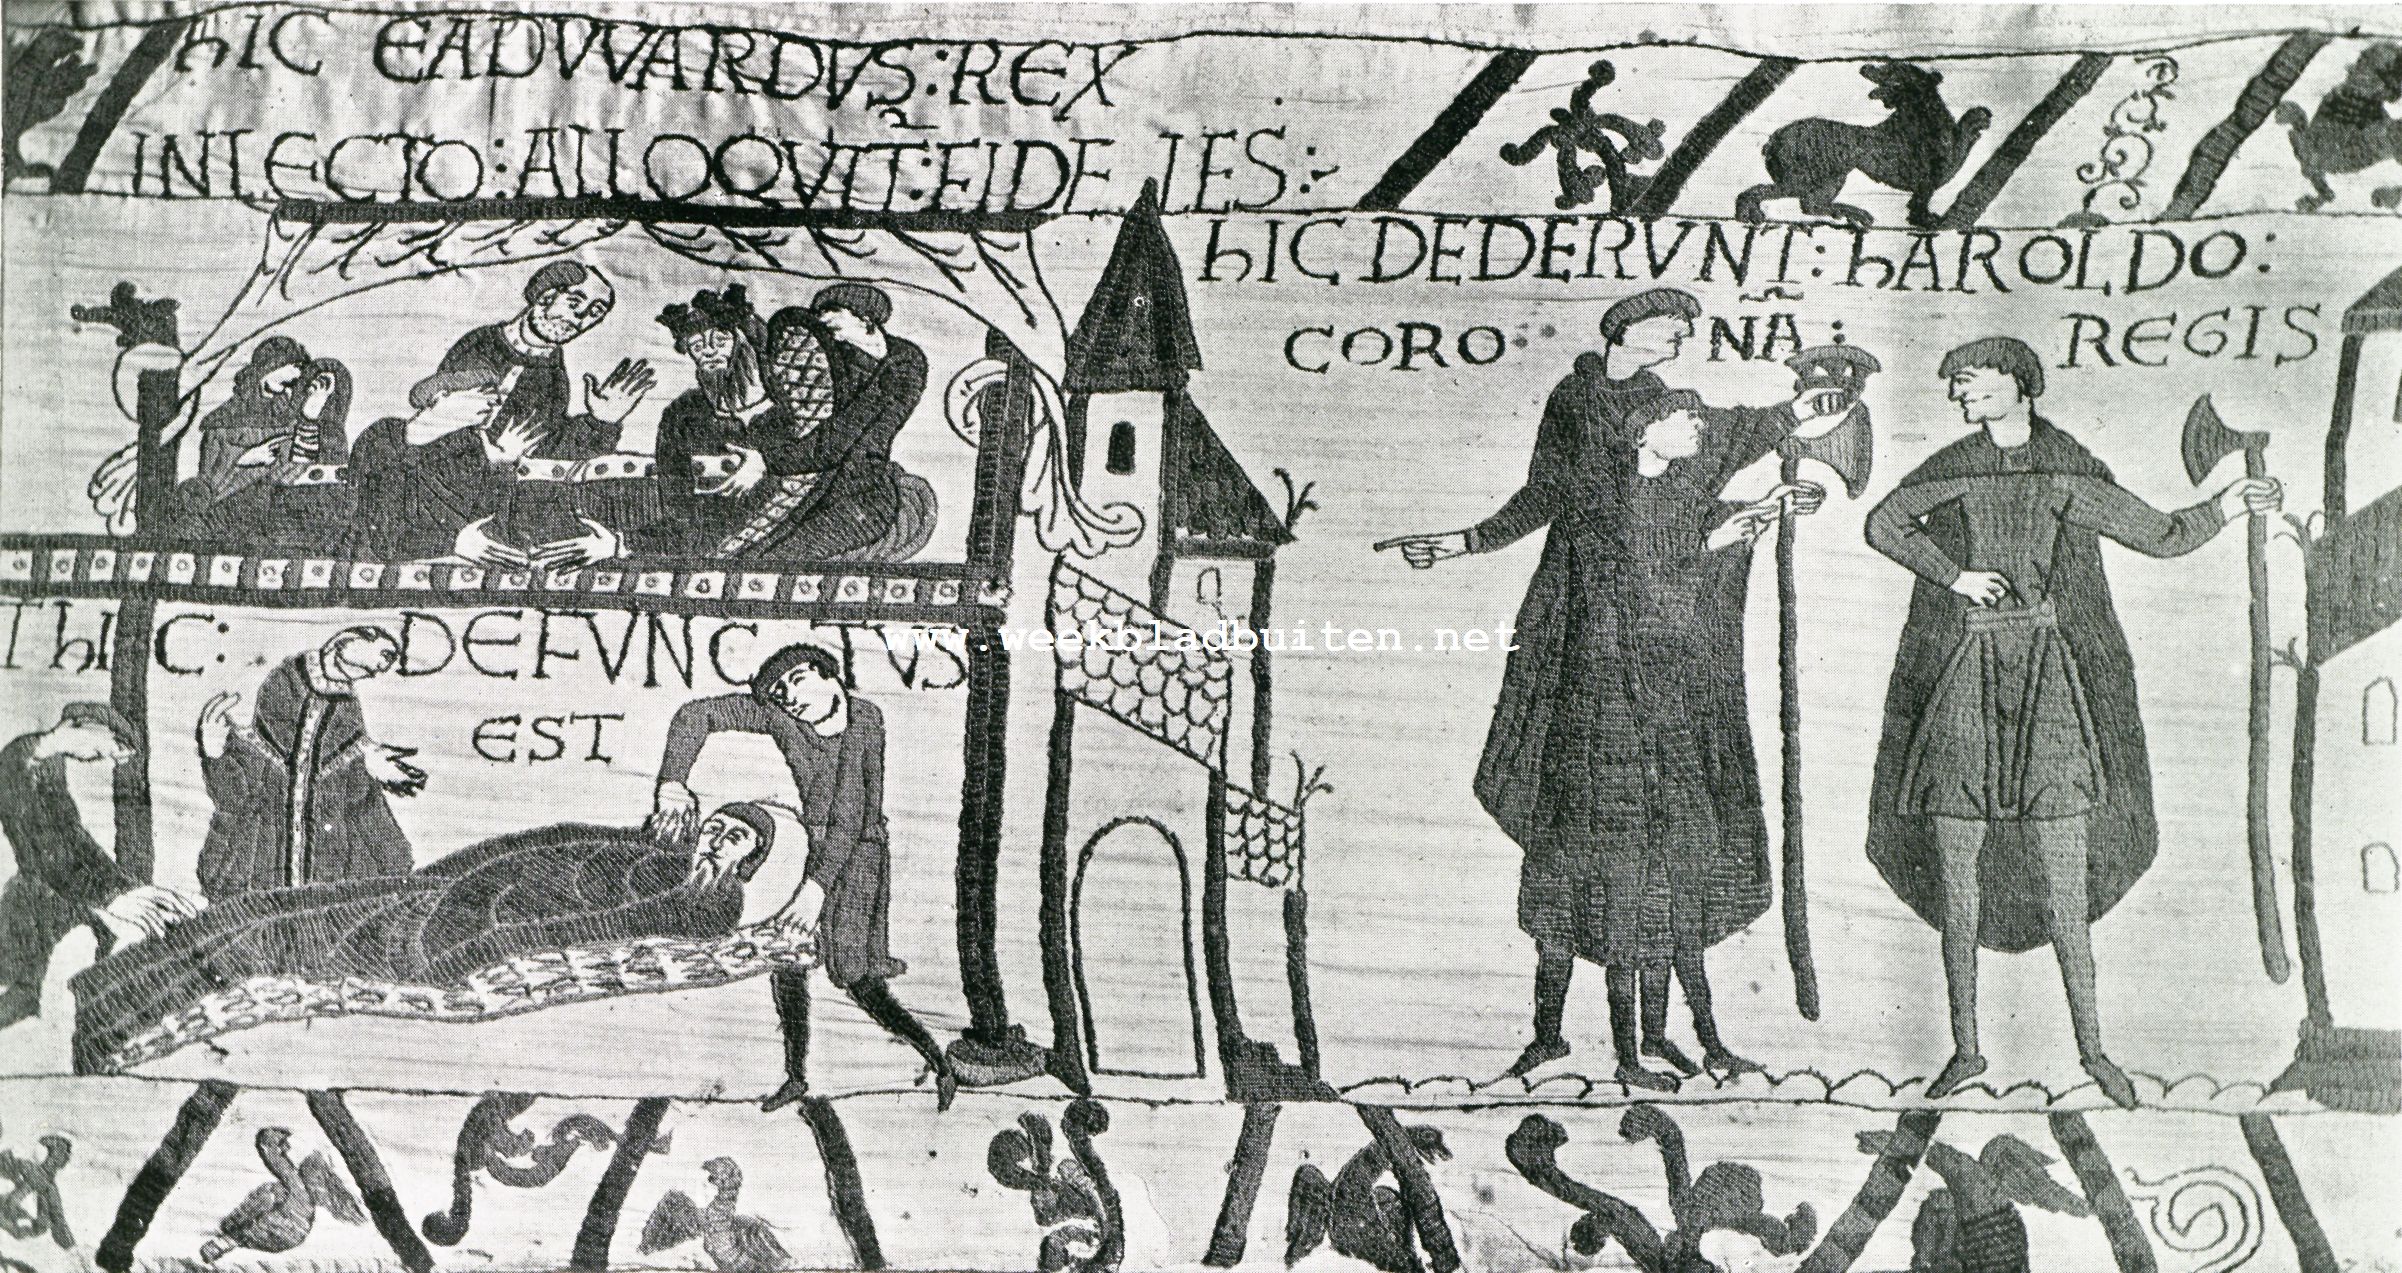 hIC EADVVARDVS: REX
IN LECTO: ALLOQVIT: FIDELES:
hIC DEDERVNT: hAROLDO:
CORONÃ: REGIS
T hIC: DEFVNCTVS
EST
www.weekbladbuiten.net